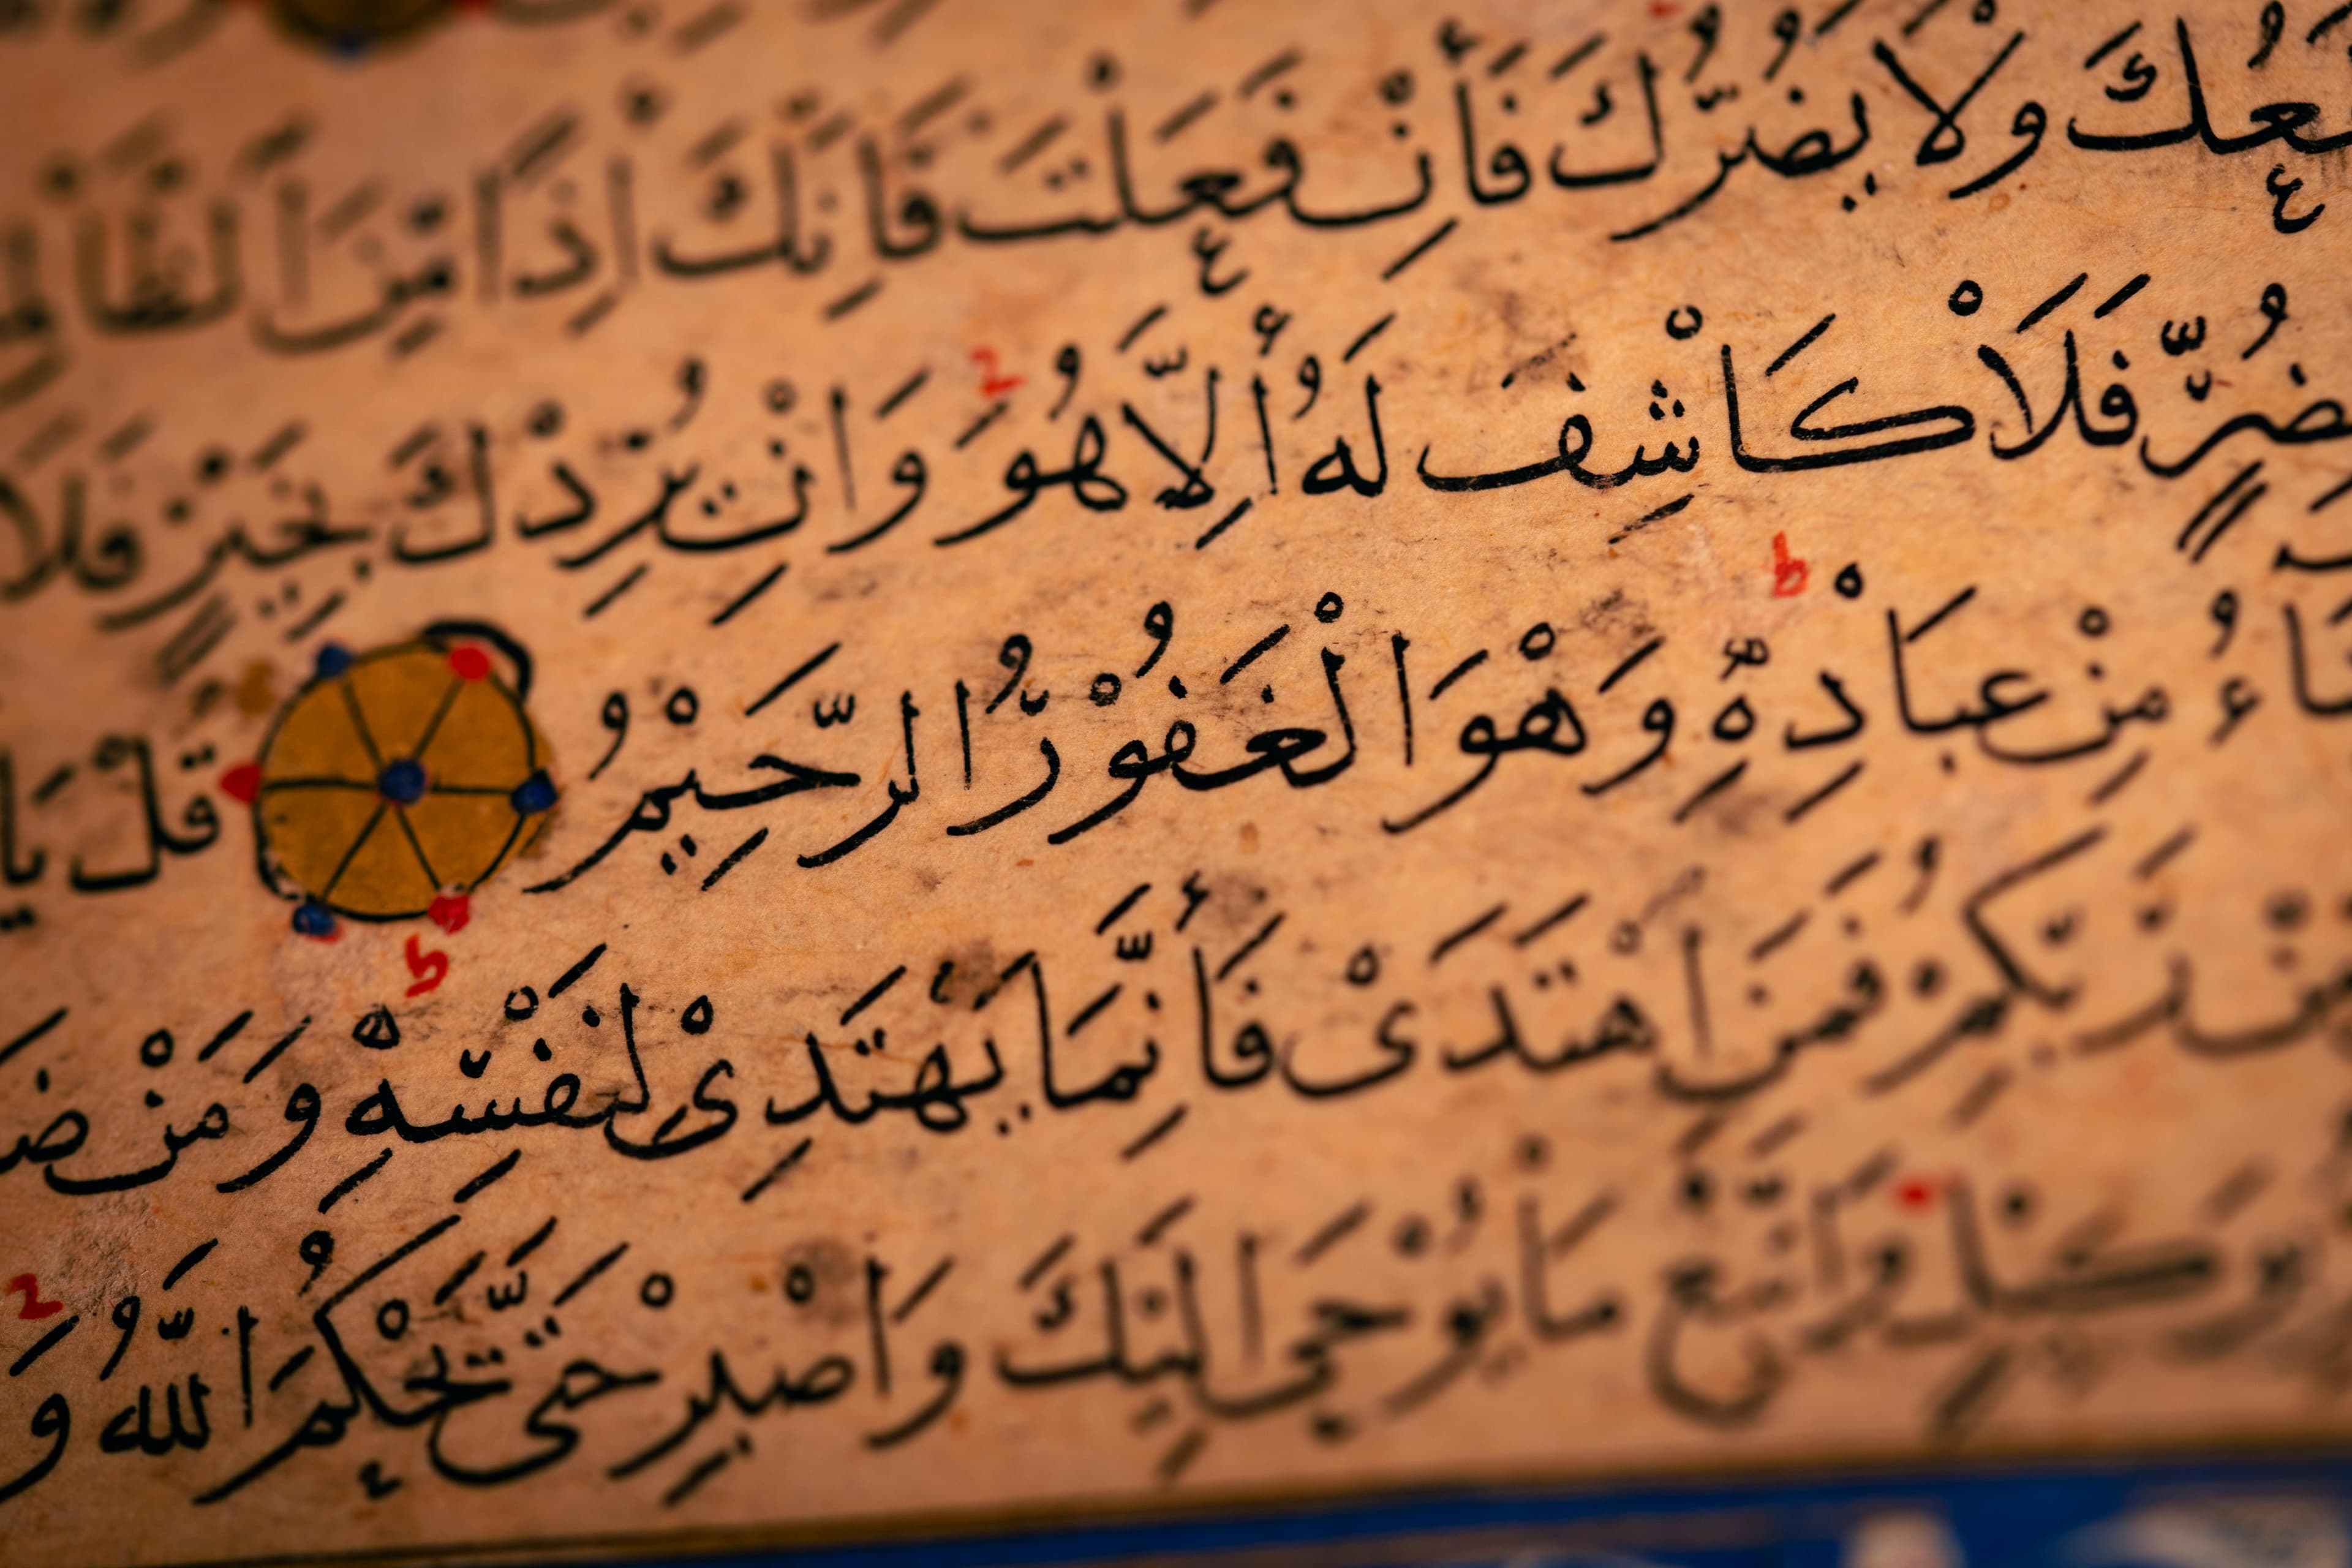 يَنفَعُكَ وَلَا يَضُرُّكَ فَأِنْ فَعَلْتَ فَاِنَّكَ اِذًا مِنَ الظَّالِمِ
بِضُرٍّ فَلَاْ كَاْشِفَ لَهُ أِلَّا هُوَ وَاِنْ يُرِدْكَ بِخَيْرٍ فَلَا
مِنْ عِبَاْدِهِ وَهْوَ الْغَفُوْرُ الرَّحِيْمُ قُلْ يَا
مِنْ رَبِّكُمْ فَمَنِ اهْتَدَىْ فَأِنَّمَا يَهْتَدِىْ لِنَفْسِهْ وَمَنْ ضَ
بِوَكِيْلٍ وَاتَّبِعْ مَاْ يُوْحَى اِلَيْكَ وَاصْبِرْ حَتَّى يَحْكُمَ اللّٰهُ وَ